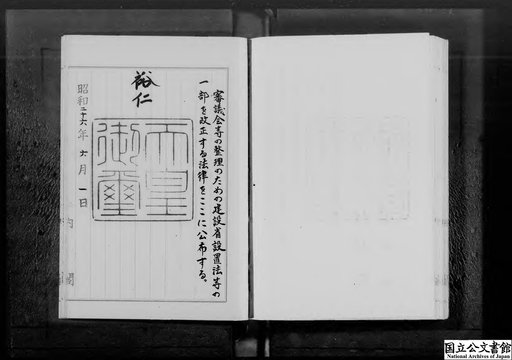 審議会等の整理のための建設省設置法等の
一部を改正する法律をここに公布する。
裕仁
天皇
御璽
昭和二十六年六月一日
内閣
国立公文書館
National Archives of Japan